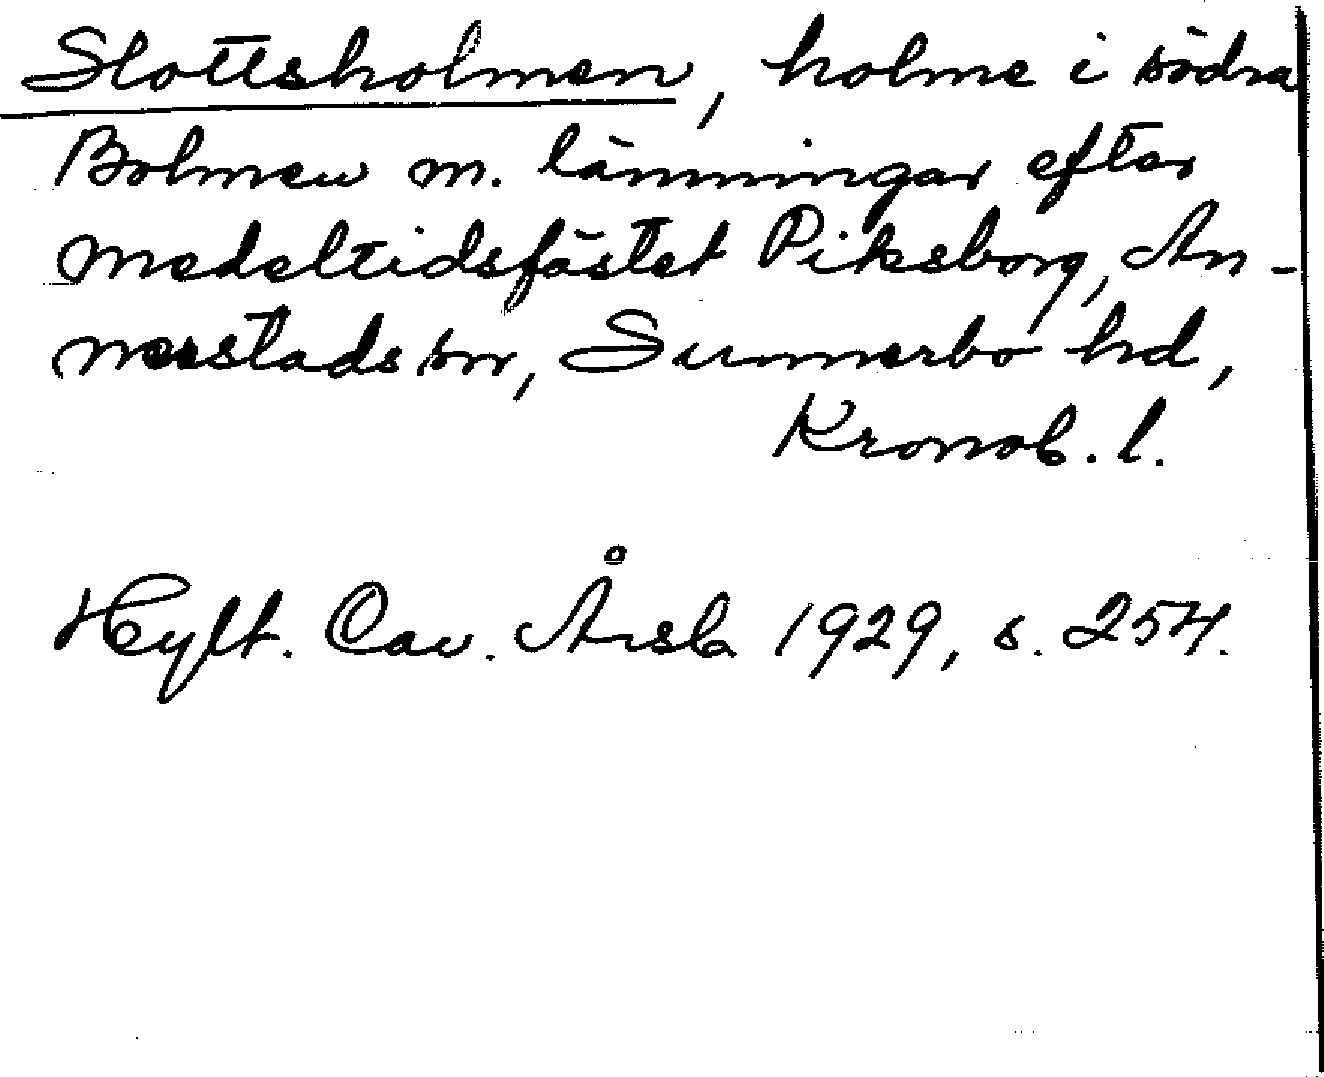 Slottsholmen, holme i södra
Bolmen m. lämningar efter
medeltidsfästet Piksborg, An-
nerstads sn, Sunnerbo hd,
Kronob. l.
Hylt. Cav. Årsb 1929, s. 254.